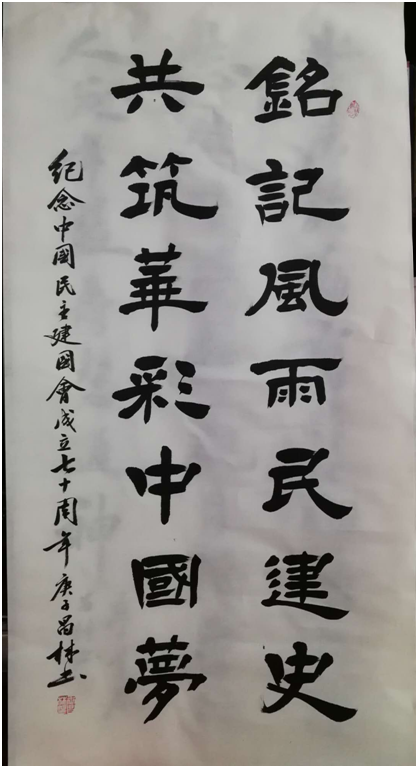 銘記風雨民建史
共筑華彩中國夢
紀念中國民主建國會成立七十周年 庚子昌林书